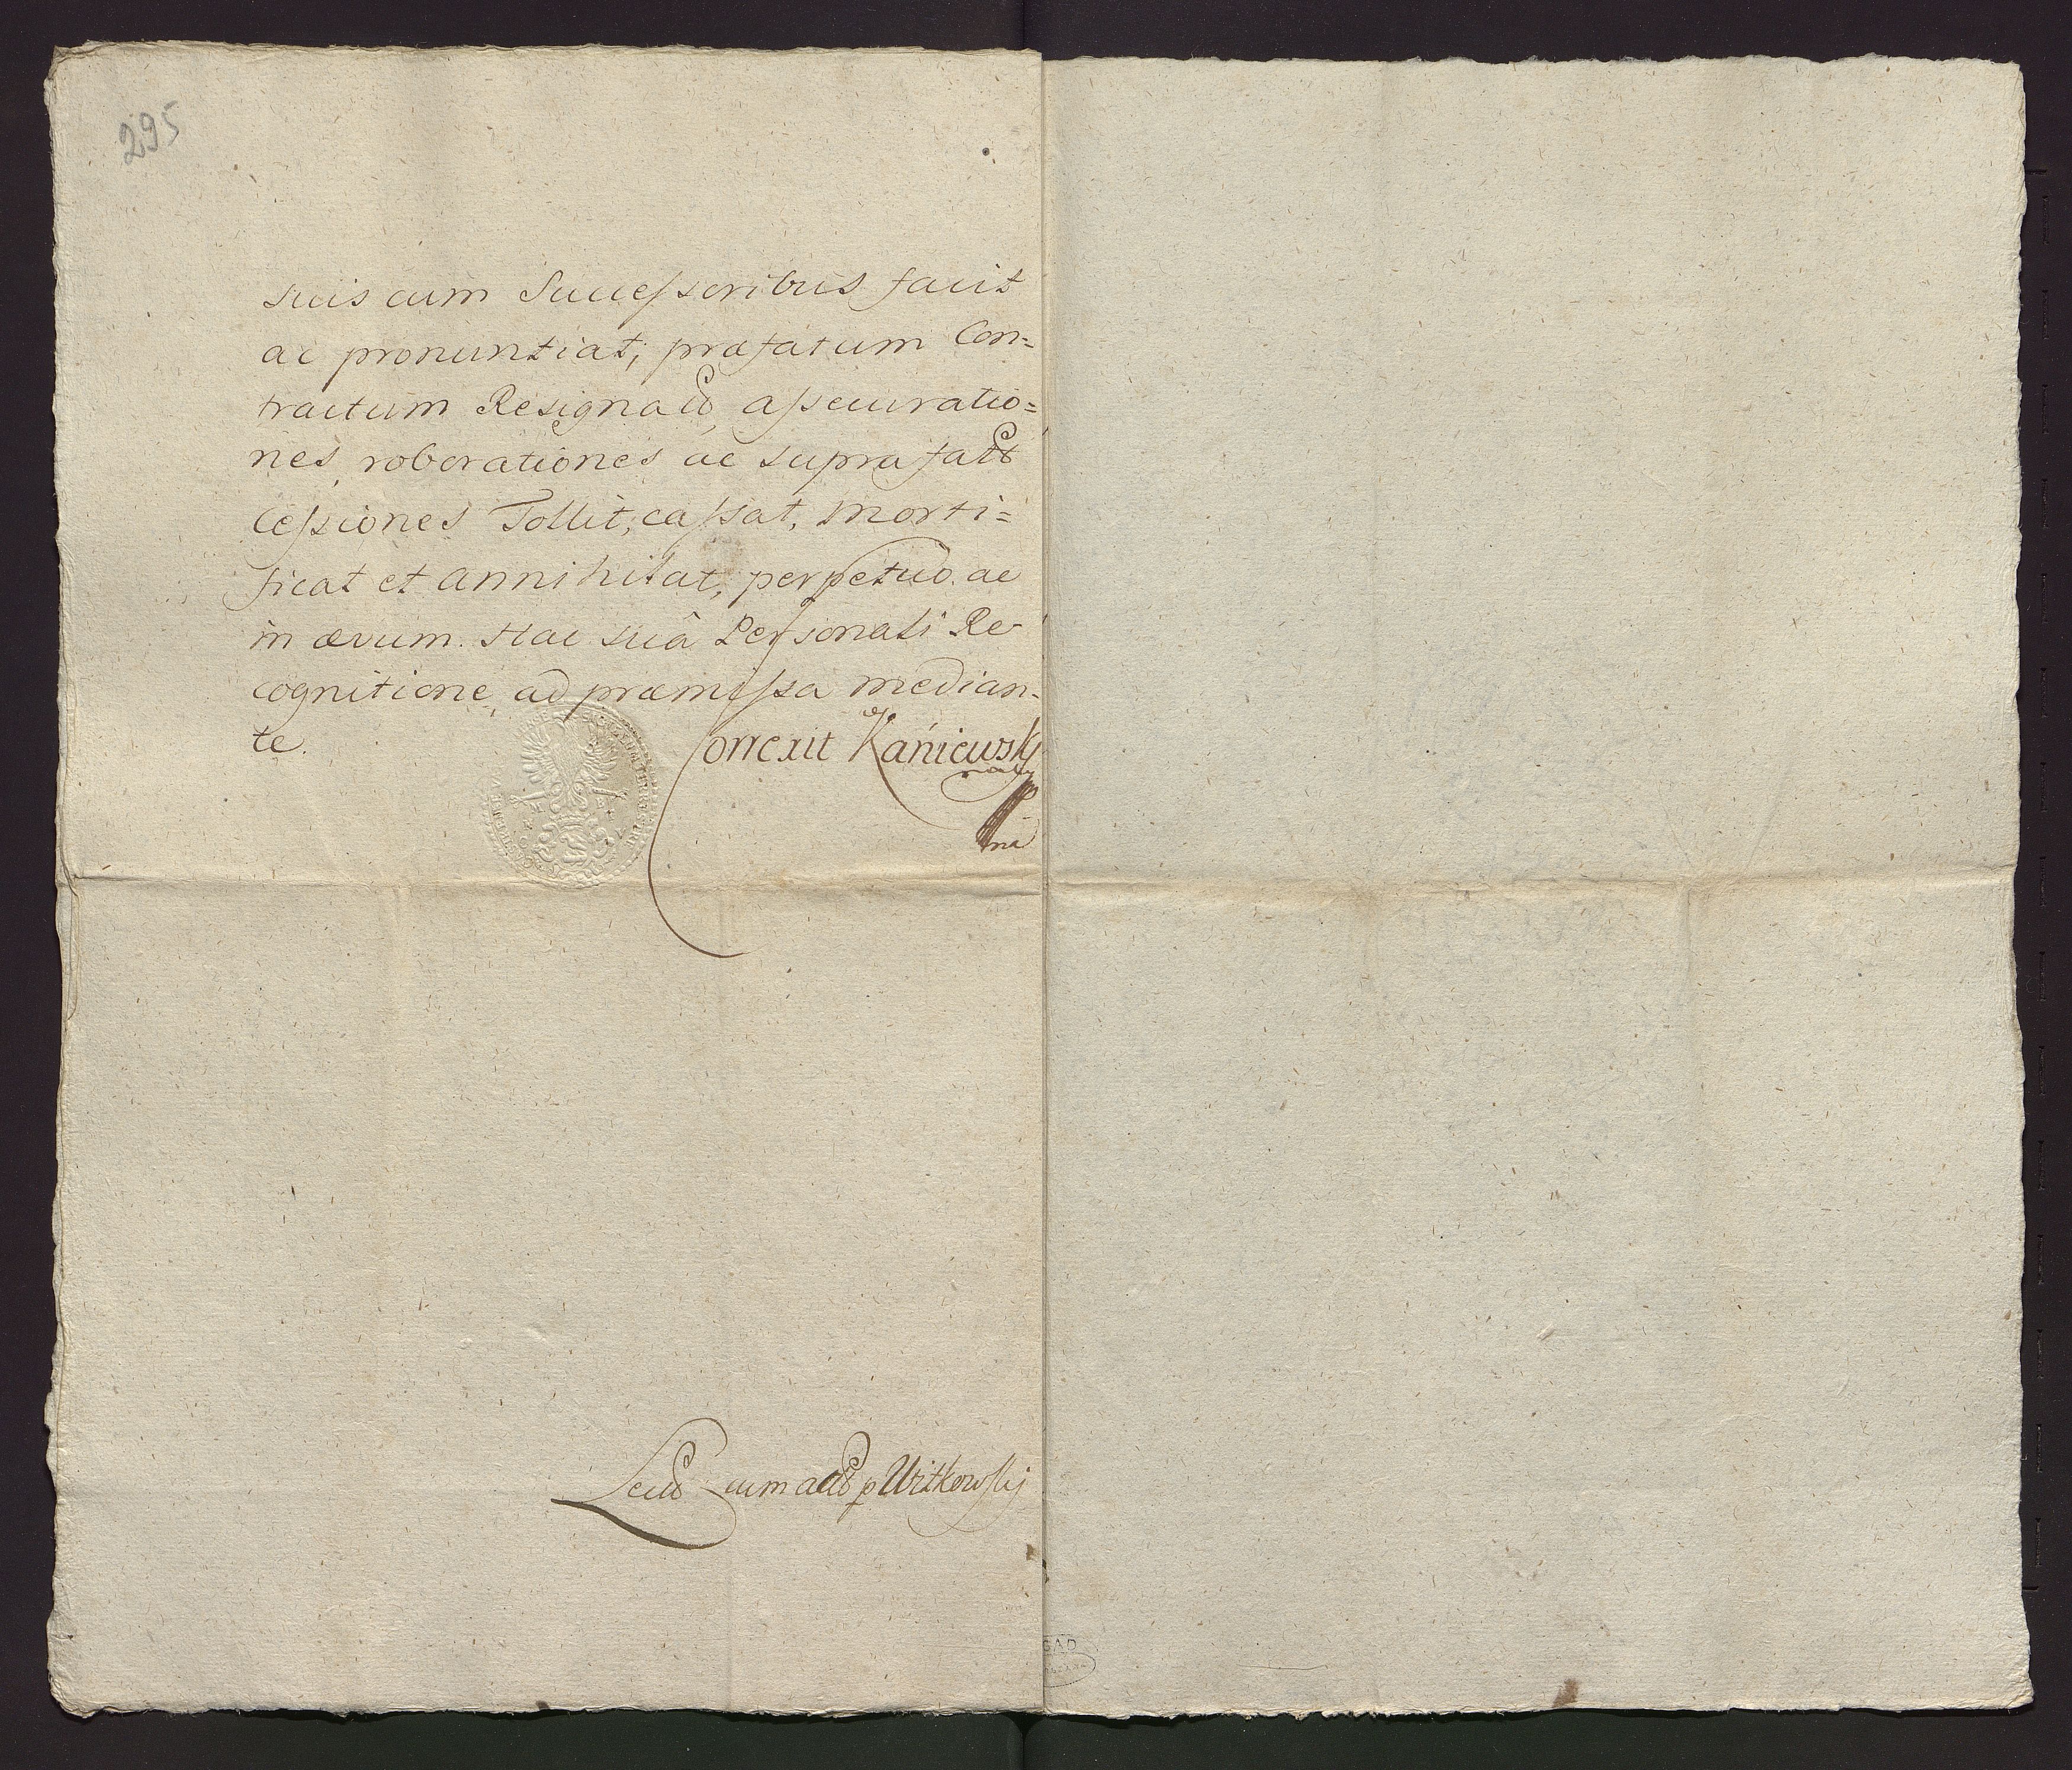 295
suis cum Successoribus facit
ac pronuntiat, præfatum Con=
tractum Resignat̃, assecuratio=
nes, roborationes ac supra fat̃
Cessiones Tollit, cassat, morti=
ficat et annihilat, perpetuò ac
in ævum. Hac suâ Personali Re-
cognitione, ad præmissa median-
te.
Correxit Kaniewsky
Lect̃ cum act̃ p Witkowskj
GAD